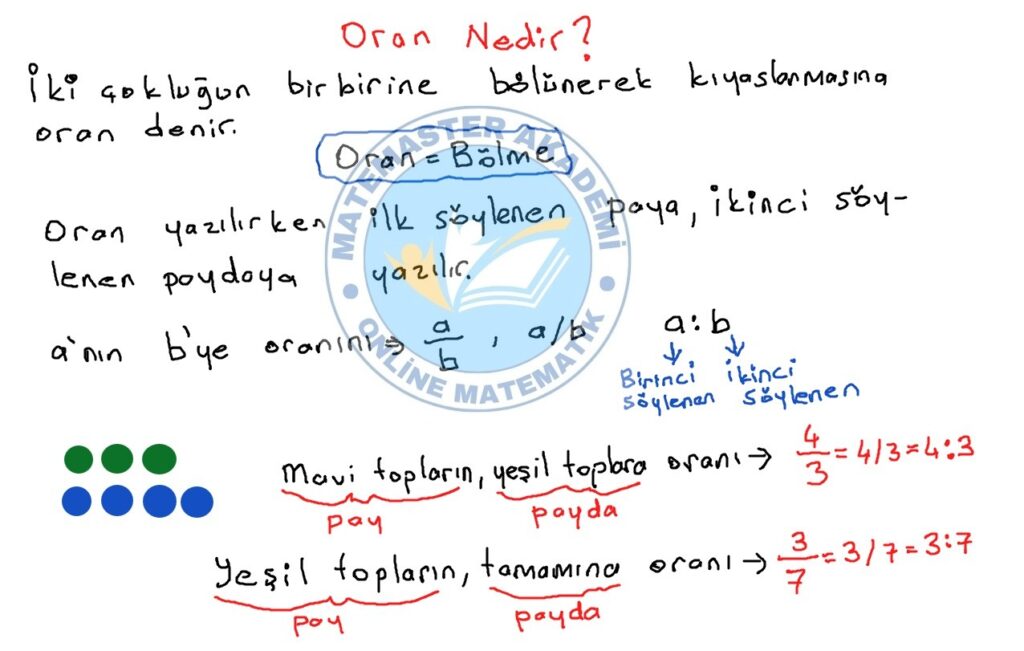 Oran Nedir?
İki çokluğun birbirine bölünerek kıyaslanmasına
oran denir.
MATEMASTER AKADEMİ
Oran = Bölme
Oran yazılırken ilk söylenen paya, ikinci söy-
lenen paydaya yazılır.
a'nın b'ye oranını ⇒ a/b , a/b a:b
Birinci söylenen
İkinci söylenen
ONLİNE MATEMATİK
Mavi topların, yeşil toplara oranı → 4/3 = 4/3 = 4:3
pay payda
Yeşil topların, tamamına oranı → 3/7 = 3/7 = 3:7
pay payda